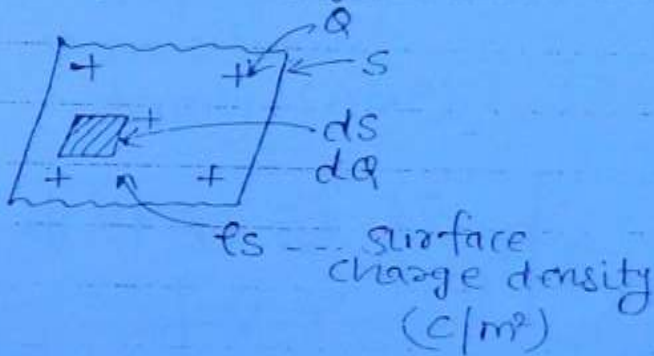 Q
+ + S
+ dS
+ + dQ
ρs --- surface
charge density
(C/m²)